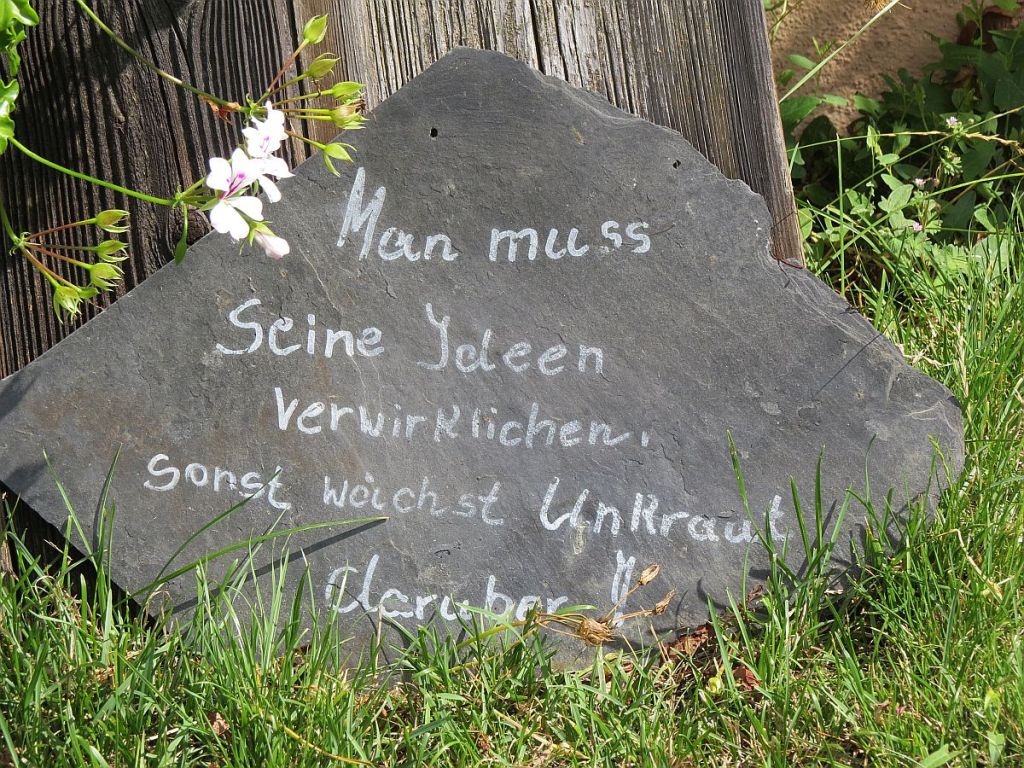 Man muss
Seine Ideen
verwirklichen,
sonst wächst Unkraut
darüber !!